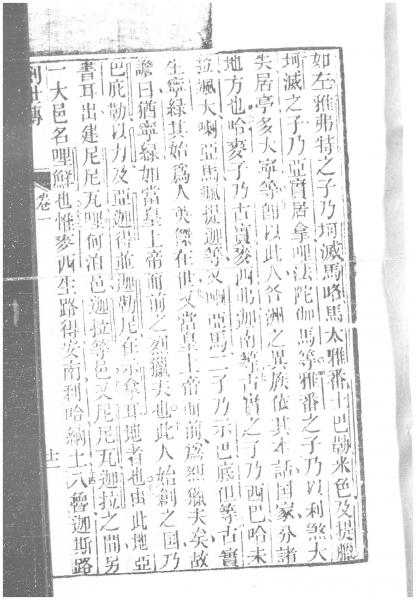 如左雅弗特之子乃坷滅馬略馬太雅番土巴勒米色及提臘
坷滅之子乃亞實居拿哩法陀伽馬等雅番之子乃以利煞大
失居亭多大寧等即以此人各洲之異族依其本話国家分諸
地方也哈麥子乃古實麥西弗迦南等古實之子乃西巴哈未
拉颯大喇亞馬颯提迦等又喇亞馬二子乃示巴底但等古實
生寧綠其始爲人英傑在世又當皇上帝面前爲烈獵夫矣故
諺曰猶寧綠如當皇上帝面前之烈獵夫也此人始創之国乃
巴庇勒以力及亞迦得並迦勒尼在示拿耳地者也由此地亞
書耳出建尼尼瓦哩何泊邑迦拉等邑又尼尼瓦迦拉之間另
一大邑名哩鮮也惟麥西生路得安南利哈納土八曾迦斯路
創世傳 卷一 十一